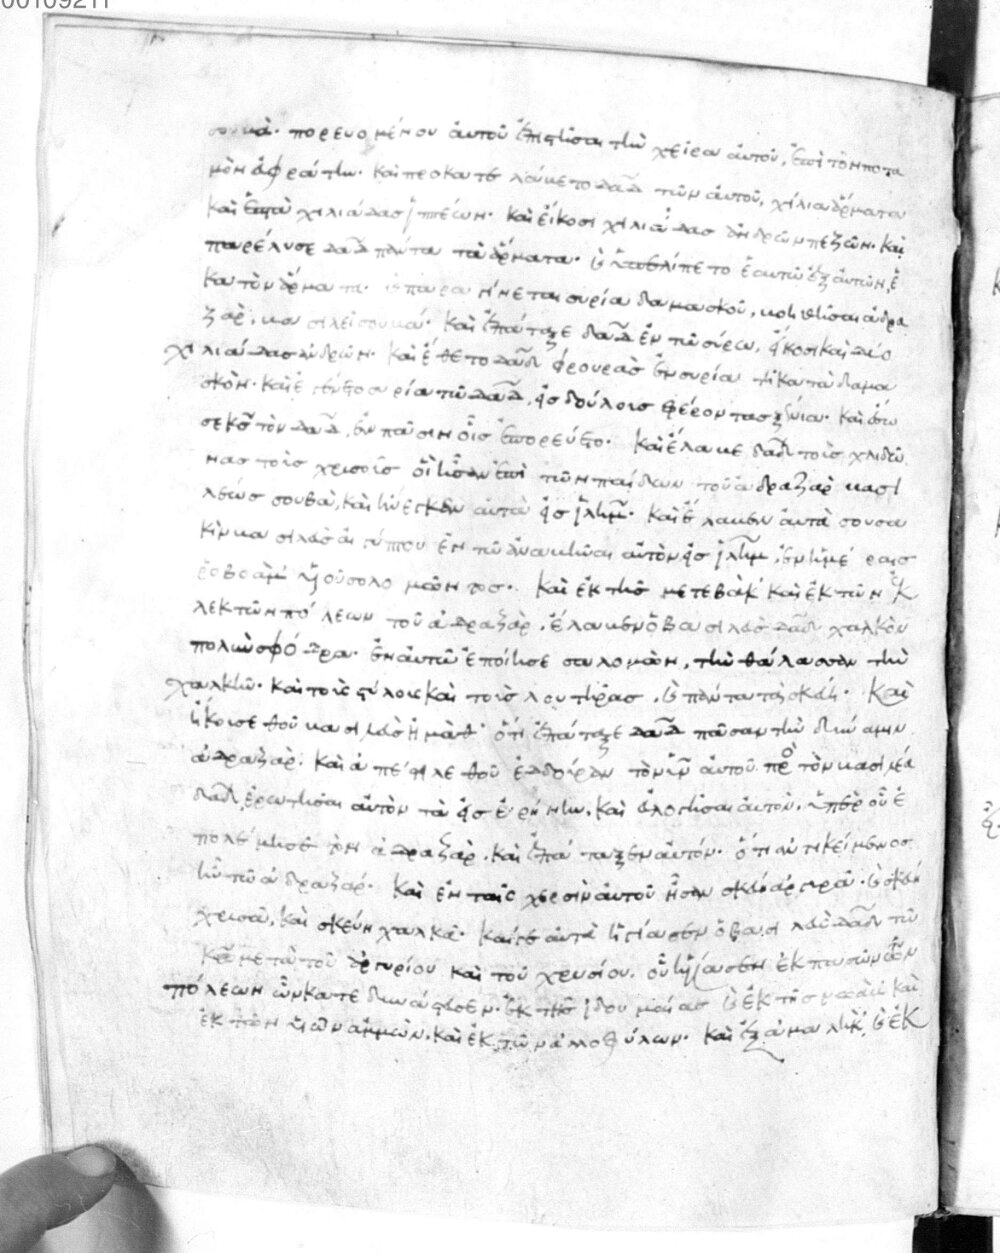 00109211
σουβὰ· πορευομένου αὐτοῦ ἐπιστῆσαι τὴν χεῖρα αὐτοῦ, ἐπὶ τὸν ποτα
μὸν ἐφράτην· καὶ προκατελάβετο δαδ τῶν αὐτοῦ, χίλια ἅρματα
καὶ ἑπτὰ χιλιάδας ἱππέων· καὶ εἴκοσι χιλιάδας ἀνδρῶν πεζῶν· καὶ
παρέλυσε δαδ πάντα τὰ ἅρματα· καὶ ὑπελίπετο ἑαυτῶ ἐξ αὐτῶν, ἑ
κατὸν ἅρματα· καὶ παραγίνεται συρία δαμασκοῦ, βοηθῆσαι ἀδρα
ζὰρ, βασιλεῖ σουβά· καὶ ἐπάταξε δαδ ἐν τῶ σύρω, εἴκοσι καὶ δύο
χιλιάδας ἀνδρῶν· καὶ ἔθετο δαδ φρουρὰσ ἐν συρία τῆ κατὰ δαμα
σκὸν· καὶ ἐγένετο συρία τῶ δαδ, εἰσ δούλουσ φέροντασ ξένια· καὶ ἔσω
σε κσ τὸν δαδ, ἐν πᾶσιν οἷσ ἐπορεύετο· καὶ ἔλαβε δαδ τοὺσ χλιδῶ
νασ τοὺσ χρυσοῦσ οἳ ἦσαν ἐπὶ τῶν παίδων τοῦ ἀδραζαρ βασι
λέωσ σουβὰ, καὶ ἤνεγκεν αὐτὰ εἰσ ιλημ· καὶ ἔλαβεν αὐτὰ σουσα
κὶμ βασιλεὺσ αἰγύπτου ἐν τῶ ἀναβῆναι αὐτὸν εἰσ ιλημ, ἐν ἡμέραισ
ροβοὰμ υἱοῦ σολομῶντοσ· καὶ ἐκ τῆσ μετεβὰκ καὶ ἐκ τῶν ἐκ
λεκτῶν πόλεων τοῦ ἀδραζὰρ, ἔλαβεν ὁ βασιλεὺσ δαδ χαλκὸν
πολὺν σφόδρα· ἐν αὐτῶ ἐποίησε σαλομὼν, τὴν θάλασσαν τὴν
χαλκῆν· καὶ τοὺσ στύλουσ καὶ τοὺσ λουτῆρασ, καὶ πάντα τὰ σκεύη· καὶ
ἤκουσε θοοῦ βασιλεὺσ ἠμὰθ ὅτι ἐπάταξε δαδ πᾶσαν τὴν δύναμιν
ἀδραζὰρ· καὶ ἀπέστειλε θοοῦ ἐδδοίραν τὸν υἱὸν αὐτοῦ πρὸσ τὸν βασιλέα
δαδ, ἐρωτῆσαι αὐτὸν τὰ εἰσ εἰρήνην, καὶ εὐλογῆσαι αὐτὸν, ὑπὲρ οὗ ἐ
πολέμησε τὸν ἀδραζὰρ, καὶ ἐπάταξεν αὐτόν· ὅτι ἀντικείμενοσ
ἦν τῶ ἀδραζάρ· καὶ ἐν ταῖσ χερσὶν αὐτοῦ ἦσαν σκεύη ἀργυρᾶ· καὶ σκεύη
χρυσᾶ, καὶ σκεύη χαλκᾶ· καίγε αὐτὰ ἡγίασεν ὁ βασιλεὺσ δαδ τῶ
κω μετὰ τοῦ ἀργυρίου καὶ τοῦ χρυσίου, οὗ ἡγίασεν ἐκ πασῶν τῶν
πόλεων ὧν κατεδυνάστευσεν· ἐκ τῆσ ἰδουμαίασ καὶ ἐκ τῆσ μωὰβ καὶ
ἐκ τῶν υἱῶν ἀμμὼν, καὶ ἐκ τῶν ἀλλοφύλων· καὶ ἐξ ἀμαλὴκ, καὶ ἐκ